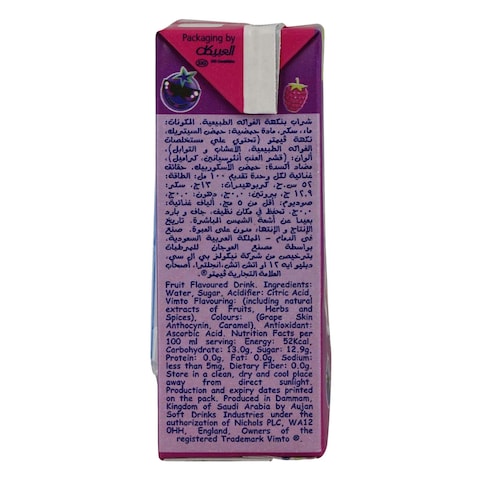 Packaging by
العبيكان
شراب بنكهة الفواكه الطبيعية. المكونات:
ماء، سكر، مادة حمضية: حمض الستريك،
نكهة فيمتو (تحتوي على مستخلصات
الفواكه الطبيعية، الأعشاب و التوابل)،
ألوان: (قشر العنب أنثوسيانين، كراميل)،
مضاد أكسدة: حمض الأسكوربيك. حقائق
غذائية لكل وحدة تقديم ١٠٠ مل: الطاقة:
٥٢ س.ح، كربوهيدرات: ١٣ج، سكر:
١٢.٩ ج، بروتين: ٠.٠ج، دهون: ٠.٠ج،
صوديوم: أقل من ٥ مج، ألياف غذائية:
٠.٠ج. تحفظ في مكان نظيف، جاف و بارد
بعيدا عن أشعة الشمس المباشرة. تاريخ
الإنتاج و الإنتهاء مدون على العبوة. صنع
في الدمام - المملكة العربية السعودية،
بواسطة مصنع العوجان للمرطبات
بترخيص من شركة نيكولز بي ال سي،
دبليو ايه ١٢ او اتش اتش، انجلترا. أصحاب
العلامة التجارية فيمتو®.
Fruit Flavoured Drink. Ingredients:
Water, Sugar, Acidifier: Citric Acid,
Vimto Flavouring: (including natural
extracts of Fruits, Herbs and
Spices), Colours: (Grape Skin
Anthocynin, Caramel), Antioxidant:
Ascorbic Acid. Nutrition Facts per
100 ml serving: Energy: 52Kcal,
Carbohydrate: 13.0g, Sugar: 12.9g,
Protein: 0.0g, Fat: 0.0g, Sodium:
less than 5mg, Dietary Fiber: 0.0g.
Store in a clean, dry and cool place
away from direct sunlight.
Production and expiry dates printed
on the pack. Produced in Dammam,
Kingdom of Saudi Arabia by Aujan
Soft Drinks Industries under the
authorization of Nichols PLC, WA12
0HH, England, Owners of the
registered Trademark Vimto ®.